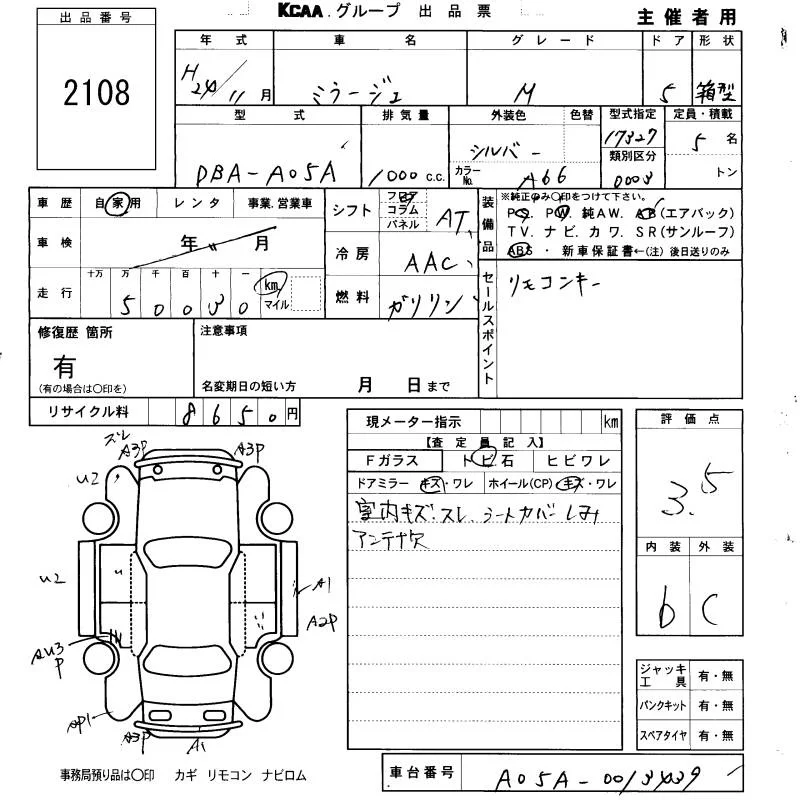 KCAA.グループ 出品票
主催者用
出品番号
2108
年式 車名 グレード ドア 形状
H24/11月 ミラージュ M 5 箱型
型式 排気量 外装色 色替 型式指定 定員・積載
DBA-A05A 1000c.c. シルバー 17327 5名
カラーNo. A66 類別区分 0003 トン
車歴 自家用 レンタ 事業.営業車
車検 年 月
十万 万 千 百 十 一
走行 50030 km. マイル
シフト フロア コラム パネル AT
冷房 AAC
燃料 ガソリン
装備品
※純正のみ○印をつけて下さい。
PS. PW. 純AW. AB(エアバック)
TV. ナビ. カワ. SR(サンルーフ)
ABS ・ 新車保証書←(注) 後日送りのみ
セールスポイント
リモコンキー
修復歴 箇所 注意事項
有
(有の場合は○印を) 名変期日の短い方 月 日まで
リサイクル料 8650円
現メーター指示 km
【査定員記入】
Fガラス トビ石 ヒビワレ
ドアミラー キズ・ワレ ホイール(CP) キズ・ワレ
室内キズ.スレ、シートカバーしみ
アンテナ欠
評価点
3.5
内装 外装
b C
ジャッキ工具 有・無
パンクキット 有・無
スペアタイヤ 有・無
スレ
A3P A3P
U2
U2 A1
A2P
AU3P
AP1
A3P A1
事務局預り品は○印 カギ リモコン ナビロム
車台番号 A05A-0013439